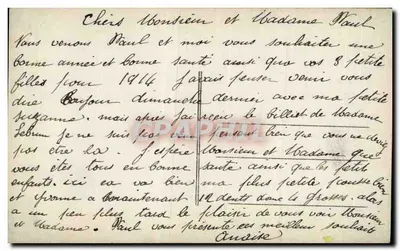 Chers Monsieur et Madame Paul
Nous venons Paul et moi vous souhaiter une
bonne année et bonne santé ainsi que vos 3 petite
filles pour 1914 J'avais penser venir vous
dire Bonjour dimanche dernier avec ma petite
Suzanne. mais après j'ai reçu le billet de Madame
Lebrun je ne suis pas venu pensant bien que vous ne
pas être là. J'espère Monsieur et Madame que
vous êtes tous en bonne santé ainsi que les petits
enfants. ici ca va bien ma plus petite pousse bien
et Yvonne a 12 dents donc
a un peu plus tard le plaisir de vous voir Monsieur
et Madame. Paul vous présente ses meilleur souhaits
Anaïse